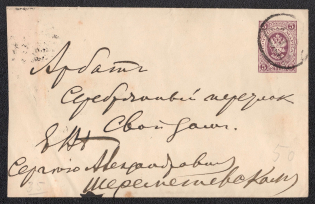 Арбатъ
Серебряный переулок
Свой домъ.
ЕВП
Сергѣю Александровичу
Шереметевскому
50